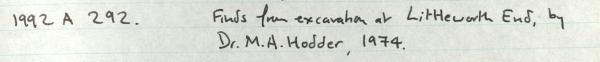 1992 A 292. Finds from excavation at Littleworth End, by
Dr. M.A. Hodder, 1974.